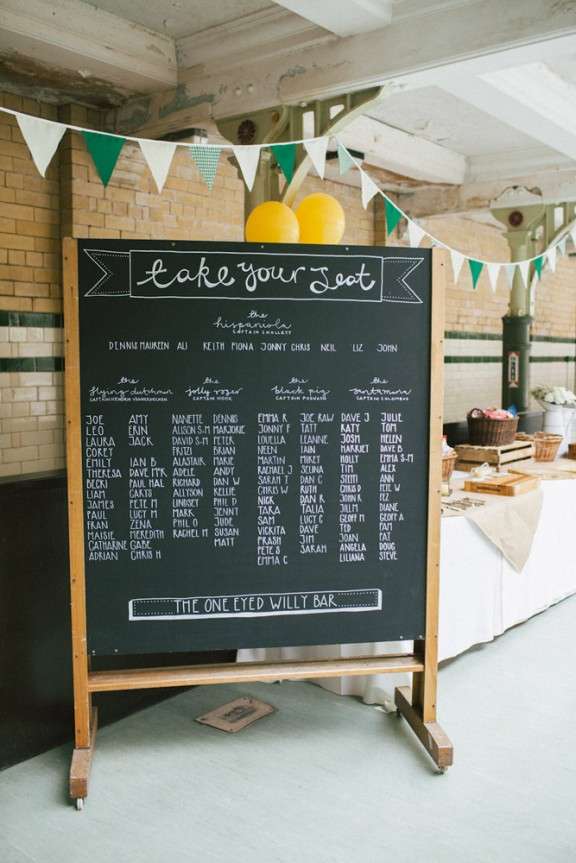 take your seat
the
hispaniola
CAPTAIN SMOLLETT
DENNIS MAUREEN ALI KEITH FIONA JONNY CHRIS NEIL LIZ JOHN
the
flying dutchman
CAPTAIN HENDRIK VANDERDECKEN
JOE AMY
LEO ERIN
LAURA JACK
COREY
EMILY IAN B
THERESA DAVE MCK
BECKI PAUL HAL
LIAM CARYS
JAMES PETE M
PAUL LUCY M
FRAN ZENA
MAISIE MEREDITH
CATHARINE GABE
ADRIAN CHRIS H
the
jolly roger
CAPTAIN HOOK
NANETTE DENNIS
ALISON S-M MARJORIE
DAVID S-M PETER
FRITZI BRIAN
ALASTAIR MARK
ADELE ANDY
RICHARD DAN W
ALLYSON KELLIE
LINDSEY PHIL D
MARK JENNY
PHIL O JUDE
RACHEL M SUSAN
MATT
the
black pig
CAPTAIN PUGWASH
EMMA R JOE RAW
JONNY F TATT
LOUELLA LEANNE
NEEN IAIN
MARTIN MIKEY
RACHAEL J SELINA
SARAH T DAN C
CHRIS W RUTH
NICK DAN R
TARA TALIA
SAM LUCY C
VICKITA DAVE
PRASH JIM
PETE S SARAH
EMMA C
the
santa maria
CAPTAIN COLUMBUS
DAVE J JULIE
KATY TOM
JOSH HELEN
HARRIET DAVE B
HOLLY EMMA S-M
TIM ALEX
STEM ANN
CHRIS D PETE W
JOHN R FIZ
JILLM DIANE
GEOFF M GEOFF A
TED PAM
JOAN PAT
ANGELA DOUG
LILIANA STEVE
THE ONE EYED WILLY BAR